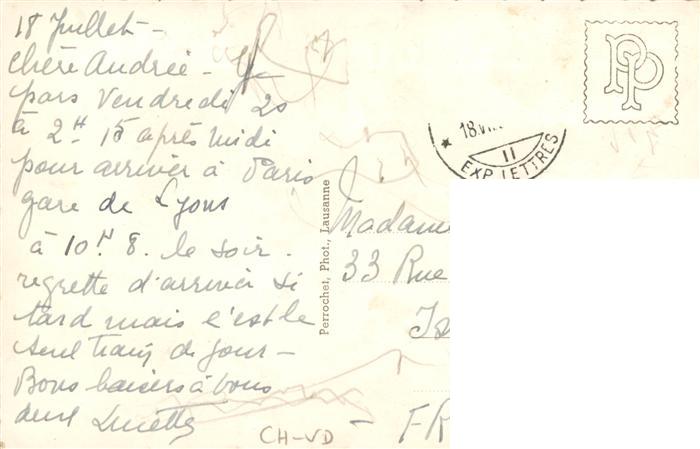 18 Juillet -
Chère Andrée - Je
pars Vendredi 20
à 2H 15 après midi
pour arriver à Paris
gare de Lyons
à 10H 8. le soir.
regrette d'arriver si
tard mais c'est le
seul train de jour -
Bons baisers à vous
deux Lucette
PP
18.VII
11
EXP. LETTRES
Perrochet, Phot., Lausanne
Madame
33 Rue
Is
- FR
CH-VD